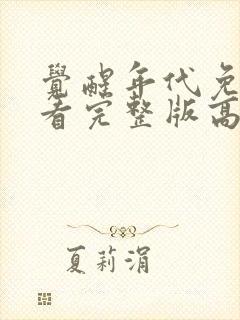 覺醒年代免
看完整版高
夏莉涓